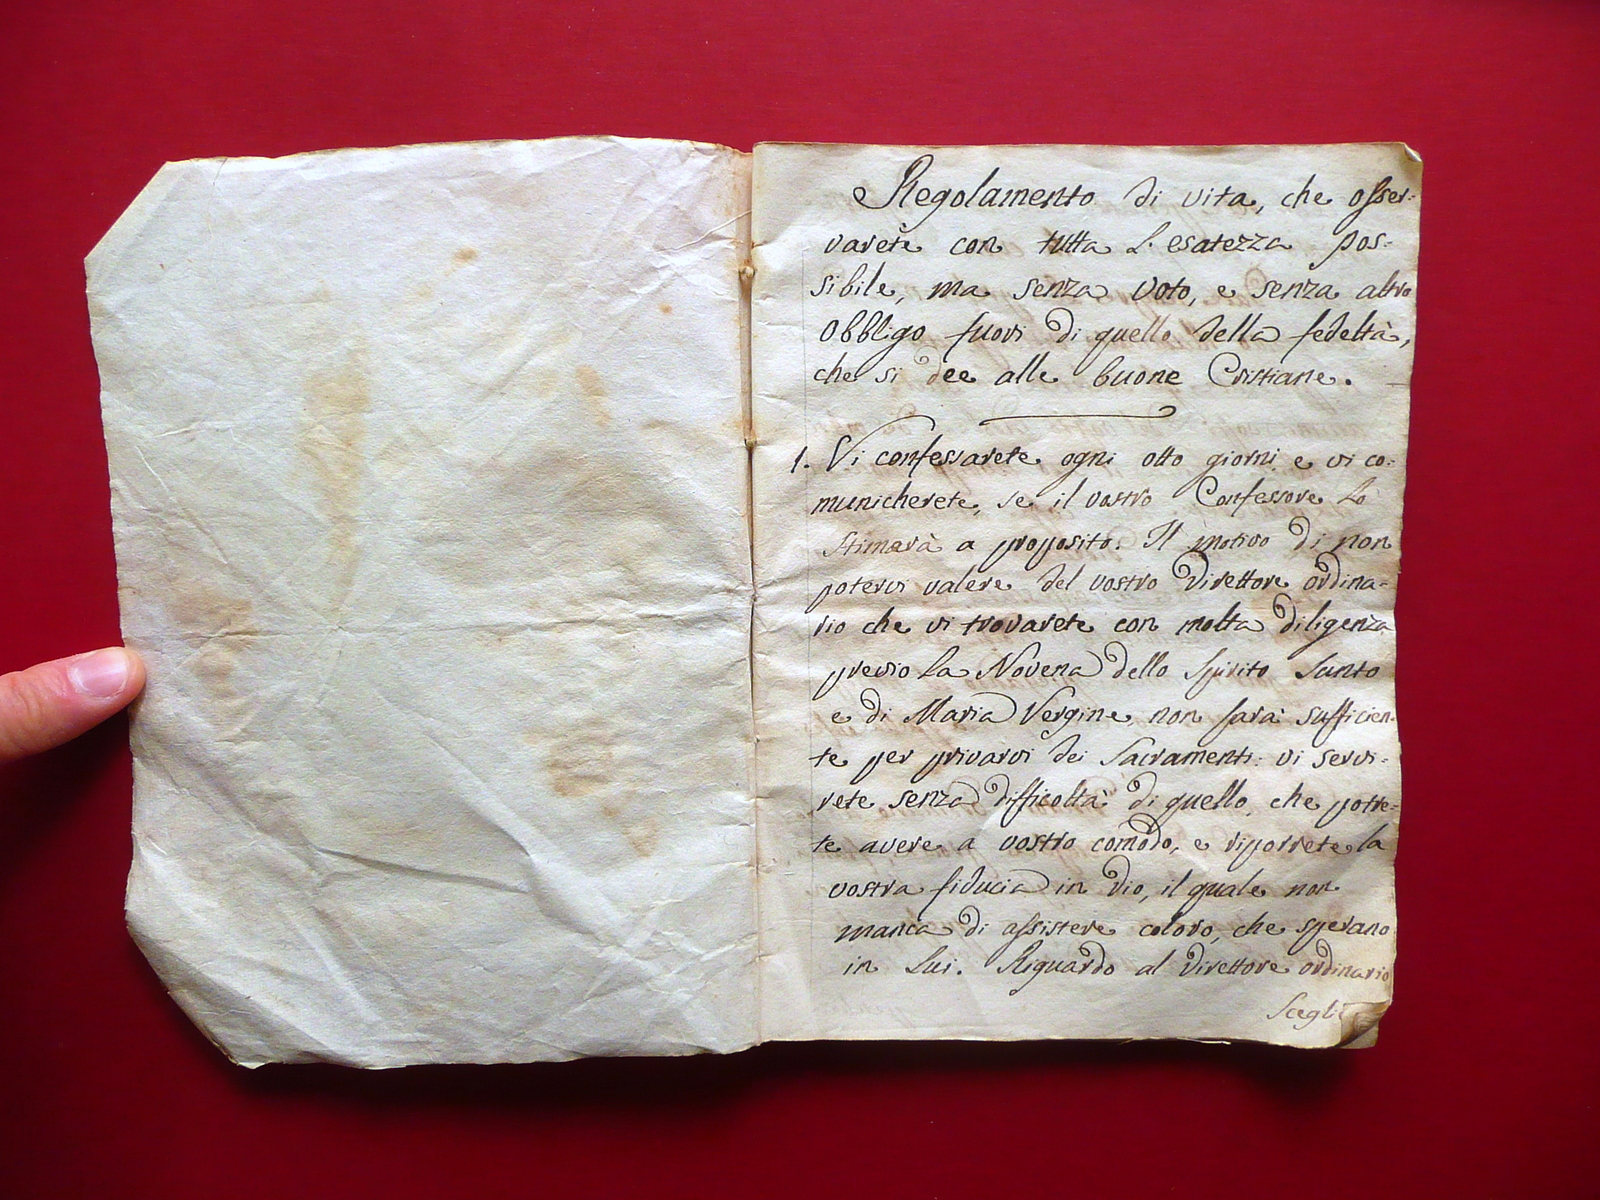 Regolamento di vita, che osser-
varete con tutta l'esatezza pos-
sibile, ma senza voto, e senza altro
obbligo fuori di quello della fedeltà,
che si dee alle buone Cristiane.
1. Vi confessarete ogni otto giorni e vi co-
municherete, se il vostro Confessore lo
stimarà a proposito. Il motivo di non
potervi valere del vostro Direttore ordina-
rio che vi trovarete con molta diligenza
previo la Novena dello Spirito Santo
e di Maria Vergine, non sarà sufficien-
te per privarvi dei Sacramenti: vi servi-
rete senza difficoltà di quello, che potre-
te avere a vostro comodo, e riporrete la
vostra fiducia in Dio, il quale non
manca di assistere coloro, che sperano
in Lui. Riguardo al Direttore ordinario